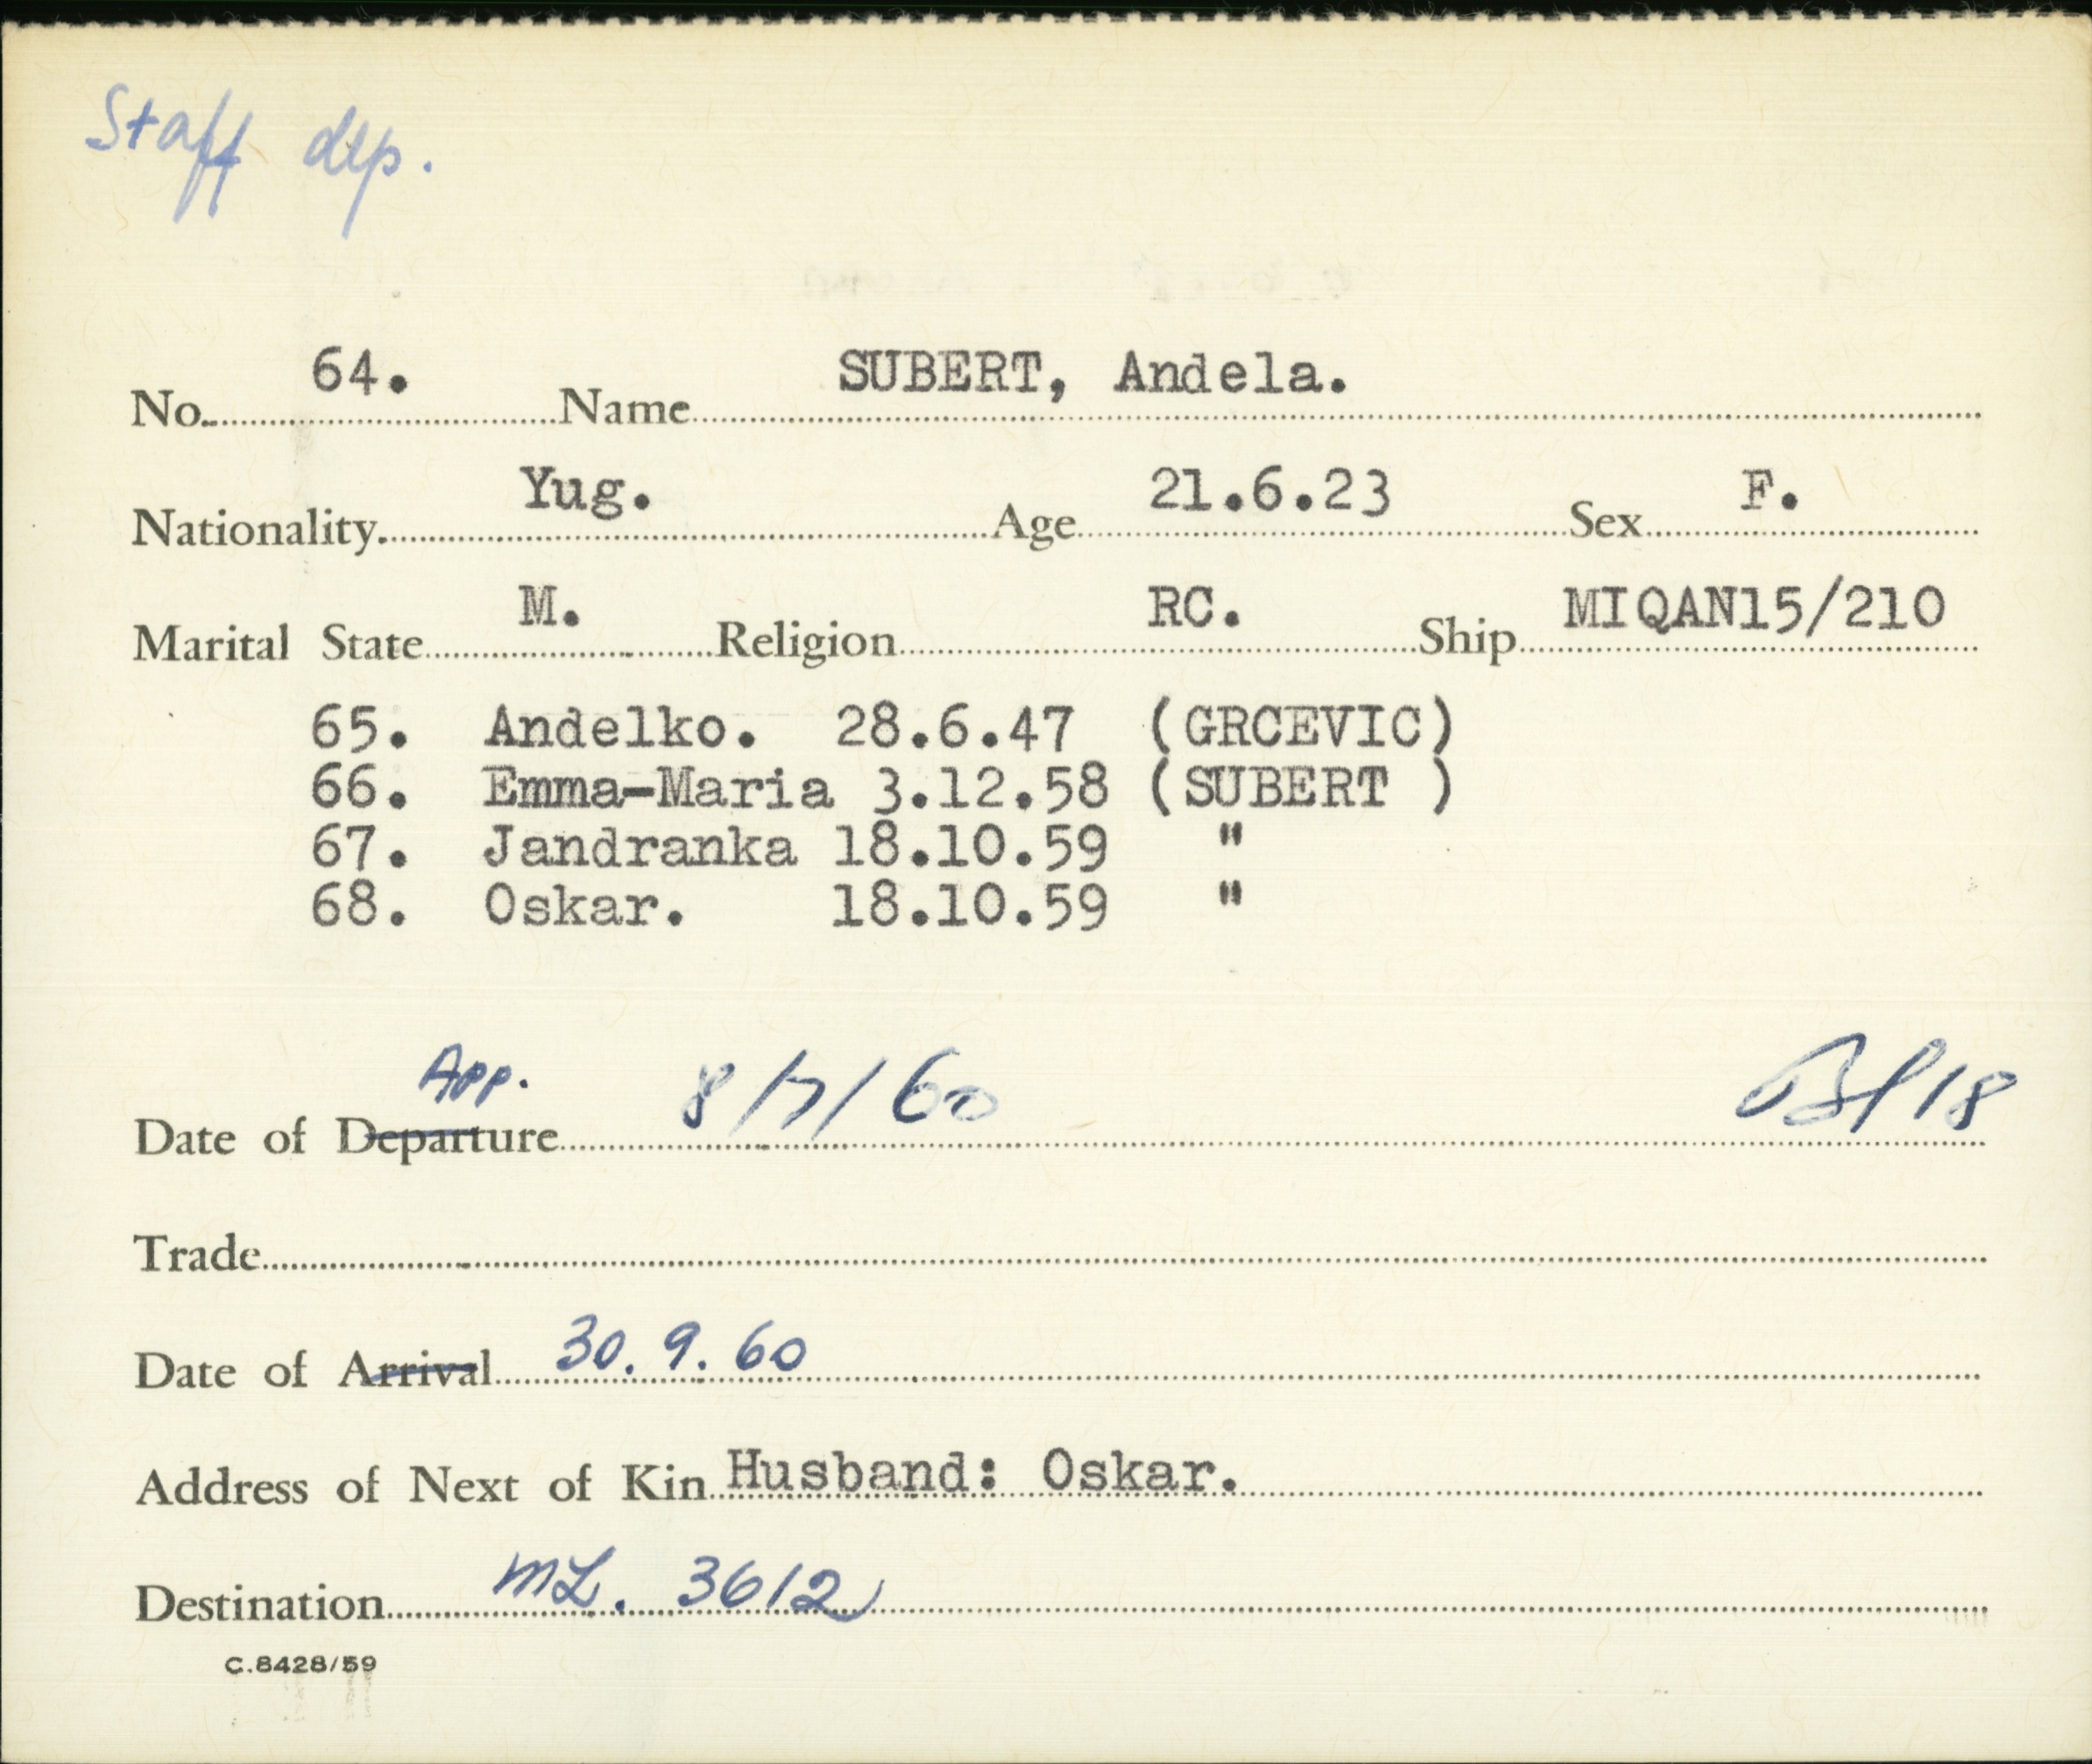 Staff dep.
No. 64. Name SUBERT, Andela.
Nationality Yug. Age 21.6.23 Sex F.
Marital State M. Religion RC. Ship MIQAN15/210
65. Andelko. 28.6.47 (GRCEVIC)
66. Emma-Maria 3.12.58 (SUBERT )
67. Jandranka 18.10.59 "
68. Oskar. 18.10.59 "
App.
Date of Departure 8/7/60
Trade
Date of Arrival 30.9.60
Address of Next of Kin Husband: Oskar.
Destination ML. 3612
C.8428/59